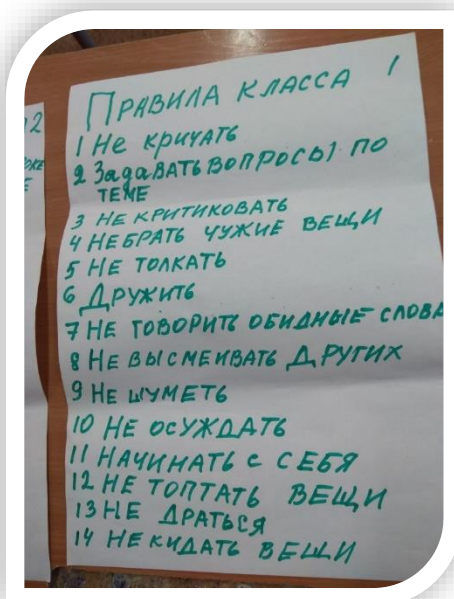 ПРАВИЛА КЛАССА 1
1 НЕ КРИЧАТЬ
2 ЗадаВАТЬ ВОПРОСЫ ПО
ТЕМЕ
3 НЕ КРИТИКОВАТЬ
4 НЕ БРАТЬ ЧУЖИЕ ВЕЩИ
5 НЕ ТОЛКАТЬ
6 ДРУЖИТЬ
7 НЕ ГОВОРИТЬ ОБИДНЫЕ СЛОВА
8 НЕ ВЫСМЕИВАТЬ ДРУГИХ
9 НЕ ШУМЕТЬ
10 НЕ ОСУЖДАТЬ
11 НАЧИНАТЬ С СЕБЯ
12 НЕ ТОПТАТЬ ВЕЩИ
13 НЕ ДРАТЬСЯ
14 НЕ КИДАТЬ ВЕЩИ
2